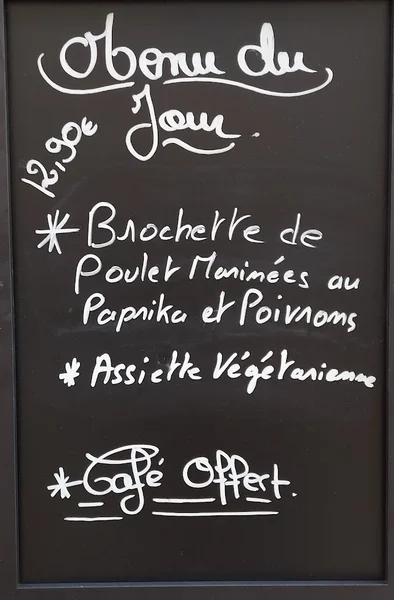 Menu du
Jour.
12,90€
* Brochette de
Poulet Marinées au
Paprika et Poivrons
* Assiette Végétarienne
* Café Offert.